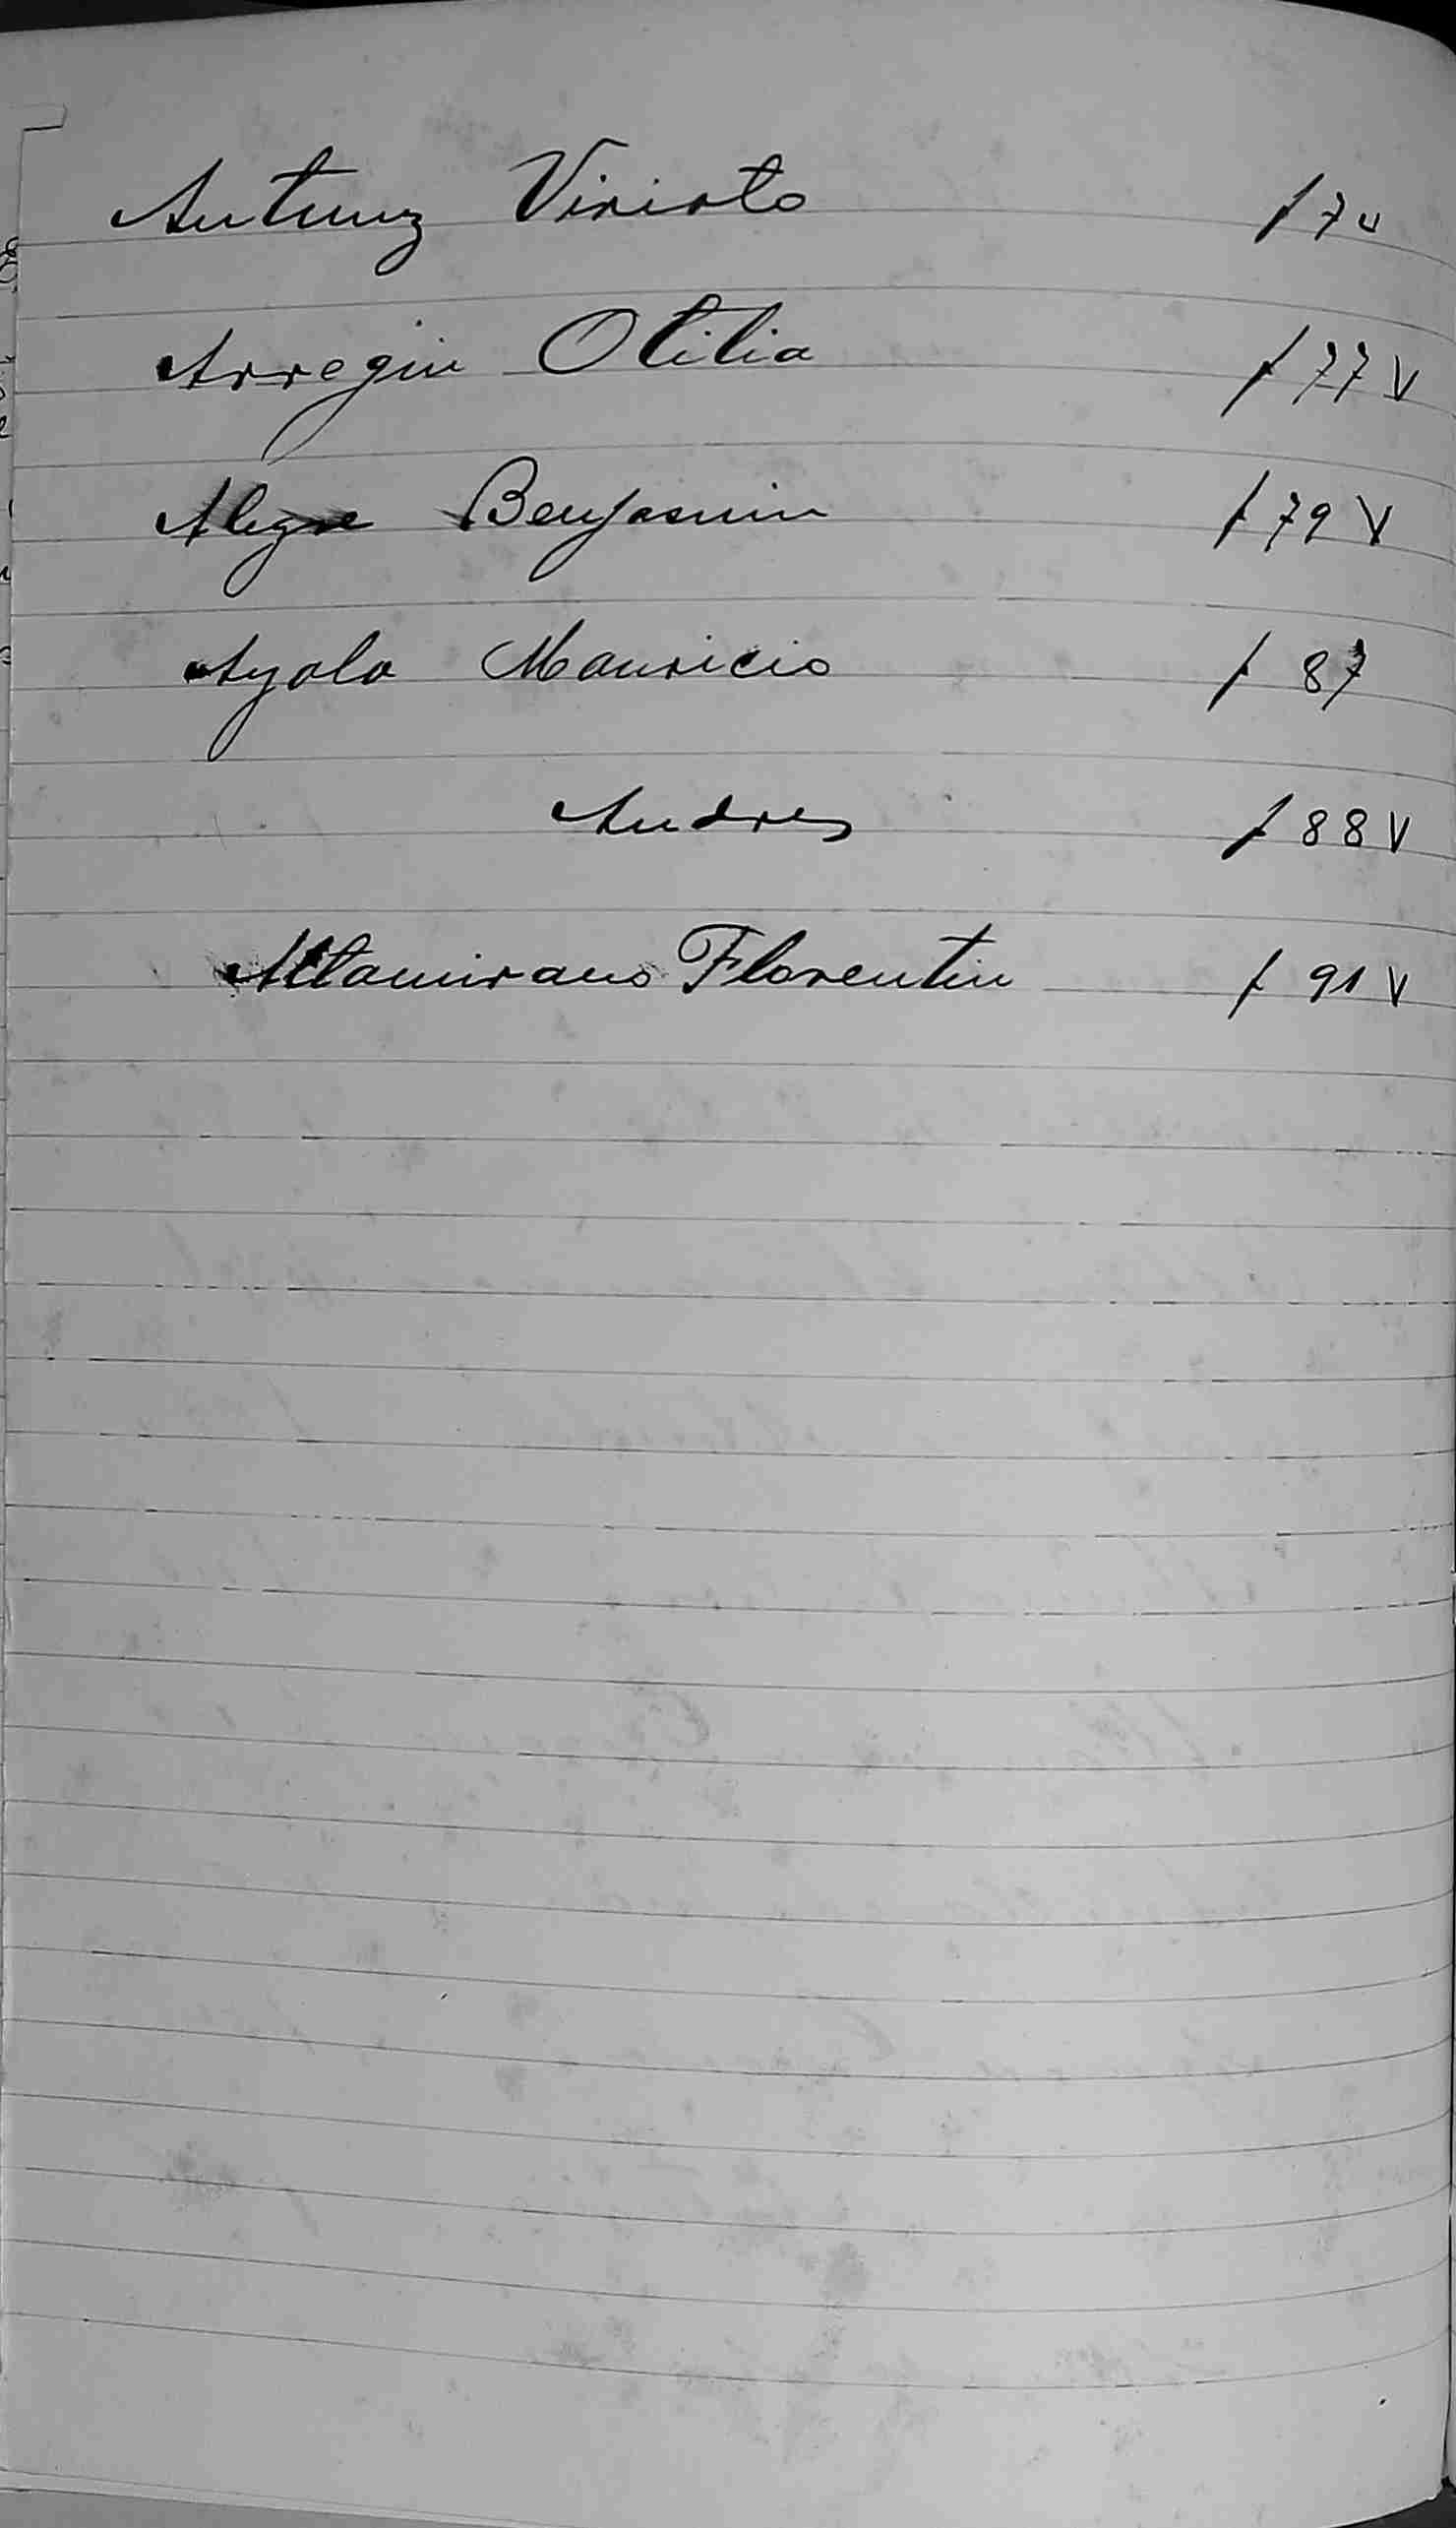 Antunez Viriato f 7v
Arregin Otilia f 77 V
Alegre Benjasmin f 79 V
Ayala Mauricio f 87
Andres f 88 V
Altamirano Florentin f 91 V